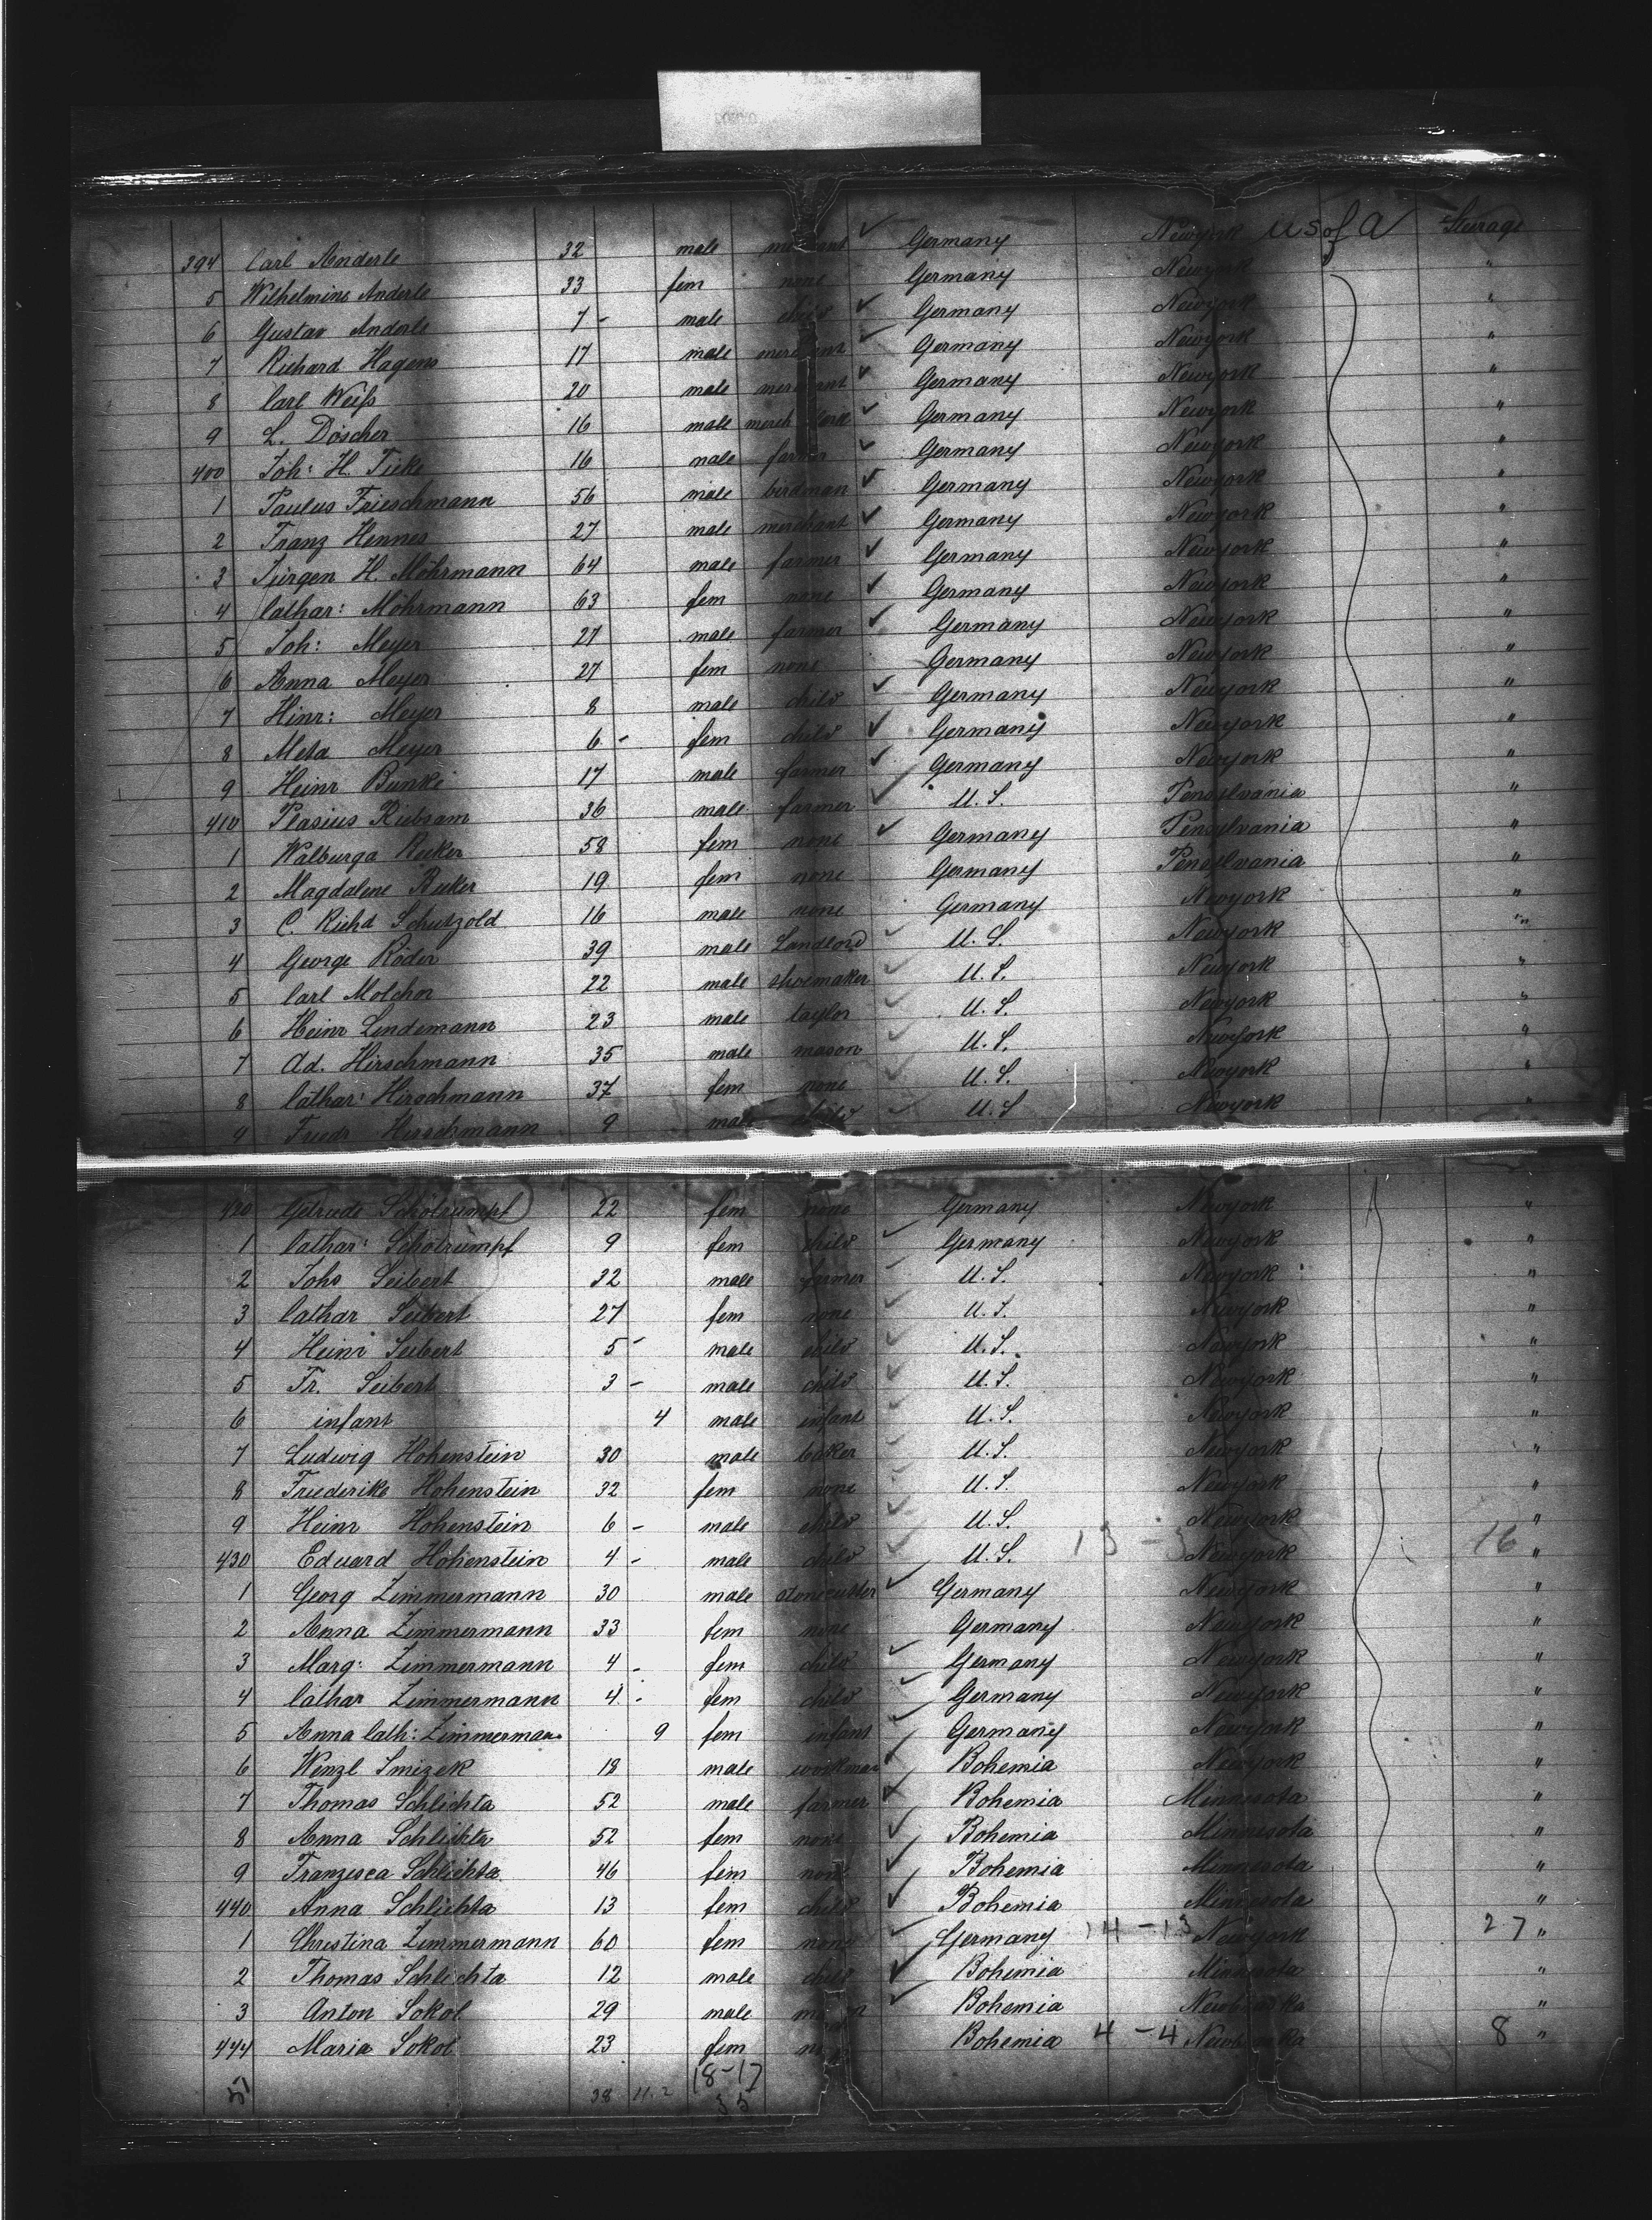 394 Carl Anderle 32 male merchant Germany Newyork U S of A Steerage
5 Wilhelmine Anderle 33 fem none Germany Newyork "
6 Gustav Anderle 7 - male child Germany Newyork "
7 Richard Hagens 17 male merchant Germany Newyork "
8 Carl Weiß 20 male merchant Germany Newyork "
9 L. Döscher 16 male merch Germany Newyork "
400 Joh: H. Ticke 16 male farmer Germany Newyork "
1 Paulus Frieschmann 56 male birdman Germany Newyork "
2 Franz Hennes 27 male merchant Germany Newyork "
3 Jürgen H. Möhrmann 64 male farmer Germany Newyork "
4 Cathar: Möhrmann 63 fem none Germany Newyork "
5 Joh: Meyer 27 male farmer Germany Newyork "
6 Anna Meyer 27 fem none Germany Newyork "
7 Hinr: Meyer 8 male child Germany Newyork "
8 Meta Meyer 6 - fem child Germany Newyork "
9 Heinr Bunke 17 male farmer Germany Newyork "
410 Plasius Riebsam 36 male farmer U. S. Pensylvania "
1 Walburga Rieker 58 fem none Germany Pensylvania "
2 Magdalene Rieker 19 fem none Germany Pensylvania "
3 C. Richd Schutzold 16 male none Germany Newyork "
4 George Röder 39 male Landlord U. S. Newyork "
5 Carl Molchor 22 male shoemaker U. S. Newyork "
6 Heinr Lindemann 23 male taylor U. S. Newyork "
7 Ad. Hirschmann 35 male mason U. S. Newyork "
8 Cathar: Hirschmann 37 fem none U. S. Newyork "
9 Friedr Hirschmann 9 male child U. S Newyork "
420 Getrude Schötrumpf 22 fem none Germany Newyork "
1 Cathar: Schötrumpf 9 fem child Germany Newyork "
2 Johs Seibert 32 male farmer U. S. Newyork "
3 Cathar Seibert 27 fem none U. S. Newyork "
4 Heinr Seibert 5 - male child U. S. Newyork "
5 Fr. Seibert 3 - male child U. S. Newyork "
6 infant 4 male infant U. S. Newyork "
7 Ludwig Hohenstein 30 male baker U. S. Newyork "
8 Friederike Hohenstein 32 fem none U. S. Newyork "
9 Heinr Hohenstein 6 - male child U. S. Newyork "
430 Eduard Hohenstein 4 - male child U. S. 13 - 3 Newyork 16 "
1 Georg Zimmermann 30 male stonecutter Germany Newyork "
2 Anna Zimmermann 33 fem none Germany Newyork "
3 Marg: Zimmermann 4 - fem child Germany Newyork "
4 Cathar Zimmermann 4 - fem child Germany Newyork "
5 Anna Cath: Zimmermann 9 fem infant Germany Newyork "
6 Wenzl Smizek 18 male workman Bohemia Newyork "
7 Thomas Schlichta 52 male farmer Bohemia Minnesota "
8 Anna Schlichta 52 fem none Bohemia Minnesota "
9 Franzesca Schlichta 46 fem none Bohemia Minnesota "
440 Anna Schlichta 13 fem child Bohemia Minnesota "
1 Christina Zimmermann 60 fem none Germany 14 - 13 Newyork 27 "
2 Thomas Schlichta 12 male child Bohemia Minnesota "
3 Anton Sokol 29 male Bohemia "
444 Maria Sokol 23 fem Bohemia 4 - 4 8 "
51 38 11. 2 18 - 17
35